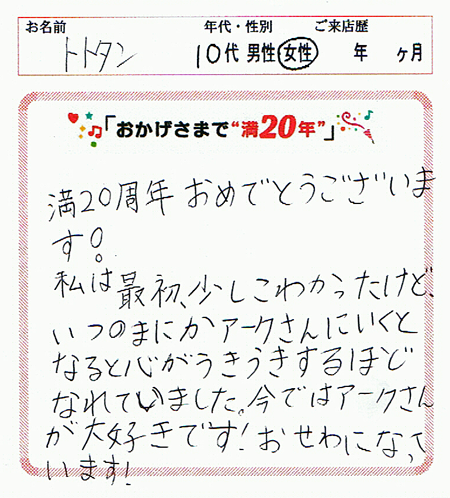 お名前 年代・性別 ご来店歴
トトタン 10代 男性 女性 年 ヶ月
「おかげさまで“満20年”」
満20周年おめでとうございま
す!
私は最初、少しこわかったけど、
いつのまにかアークさんにいくと
なると心がうきうきするほど
なれていました。今ではアークさん
が大好きです!おせわになって
います!